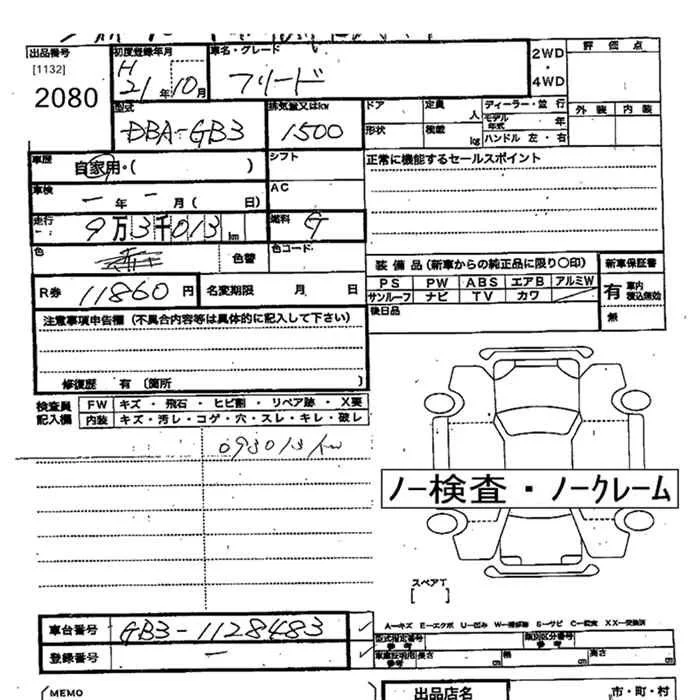 出品番号 初度登録年月 車名・グレード 2WD・4WD 評価点
[1132] H 21年10月 フリード
2080
型式 排気量又はkw ドア 定員 人 ディーラー・並行 外装 内装
DBA-GB3 1500 形状 積載 kg モデル年式 年
ハンドル 左・右
車歴 自家用・( ) シフト 正常に機能するセールスポイント
車検 ー年 ー月( 日) AC
走行 9万3千013km 燃料 G
色 色替 色コード 装備品(新車からの純正品に限り〇印) 新車保証書
PS PW ABS エアB アルミW 有 車内積込無効
R券 11860円 名変期限 月 日 サンルーフ ナビ TV カワ 無
後日品
注意事項申告欄(不具合内容等は具体的に記入して下さい)
修復歴 有 〔箇所 〕
検査員記入欄 FW キズ・飛石・ヒビ割・リペア跡・X要
内装 キズ・汚レ・コゲ・穴・スレ・キレ・破レ
093013km
ノー検査・ノークレーム
スペアT
[ ]
車台番号 GB3-1128483 ✓
A-キズ E-エクボ U-凹ミ W-補修跡 S-サビ C-腐食 XX-交換済
型式指定番号 参考 類別区分番号 参考
登録番号 ー ✓ 車庫証明用 参考 長さ cm 幅 cm 高さ cm
MEMO 出品店名 市・町・村